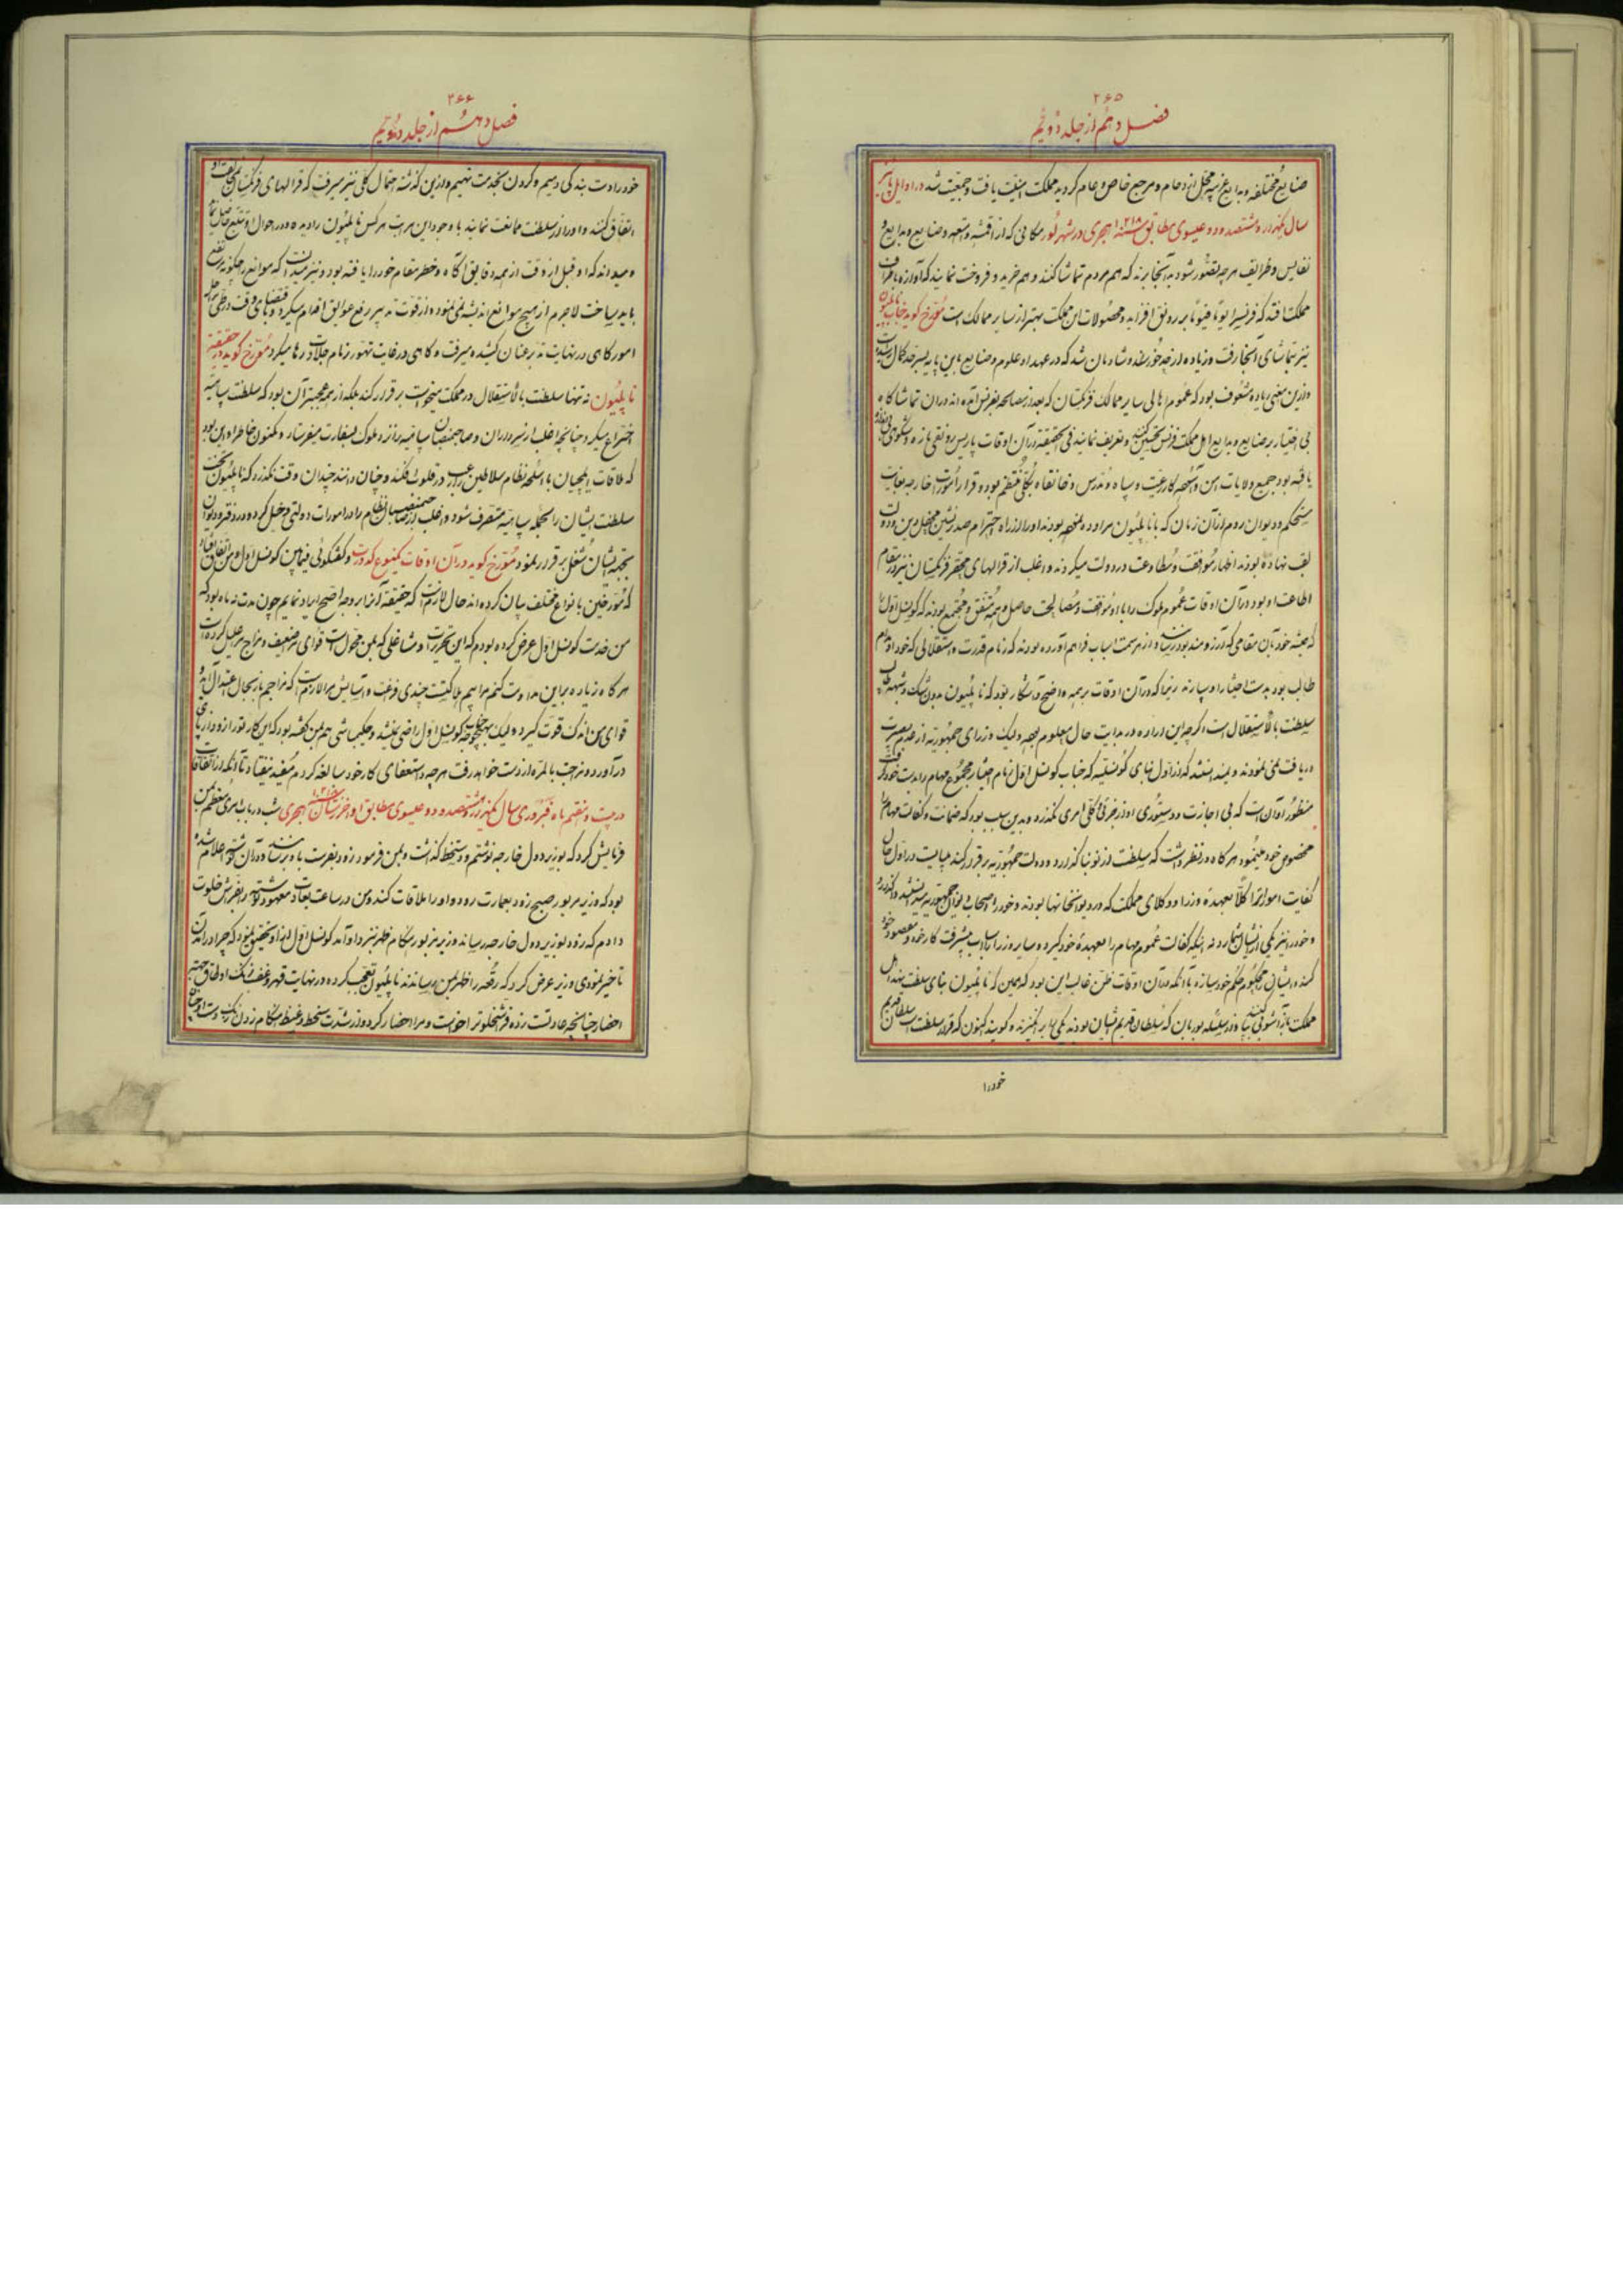 ۲۶۵
فصل دهم از جلد دویم
صنایع مختلفه و بدایع غریبه محل ازدحام و مرجع خاص و عام کردید مملکت امنیت یافت و جمعیت شد در اوایل پائیز
سال یکهزار و هشتصد و دو عیسوی مطابق سنه ۱۲۱۸ هجری در شهر لور مکانی که از اقمشه و امتعه و صنایع و بدایع و
نفایس و ظرایف هرچه تصور شود به آنجا برند که هم مردم تماشا کنند و هم خرید و فروخت نمایند که آوازه باطراف
مملکت افتد که فرنسیس را یوما فیوما بر رونق افزاید و محصولات این مملکت بهتر از سایر ممالک است مورخ کوید جناب ناپلیون
نیز بتماشای آنجا رفت و زیاده از حد خورسند و شادمان شد که در عهد او علوم و صنایع باین پایه بسرحد کمال رسیده است
و ازین معنی زیاده مشعوف بود که عموم اهالی سایر ممالک فرنکستان که بعد از مصالحه بفرنس آمده اند در آن تماشاکاه
بی اختیار بر صنایع و بدایع اهل مملکت فرنس تحسین کنند و تعریف نمایند فی الحقیقه در آن اوقات پاریس رونقی تازه و شکوهی بی اندازه
یافته بود جمیع ولایات امن و آسوده کار رعیت و سپاه و مدرس و خانقاه بکلی منتظم بود و قرار امورات خارجه بغایت
مستحکم و دیوان روم از آن زمان که با ناپلیون مراوده نموده بودند او را از راه احترام صدرنشین محفل دین و دولت
لقب نهاده بودند اظهار موافقت و مطاوعت در دولت میکردند و اغلب از قرالهای محقر فرنکستان نیز در مقام
اطاعت او بود در آن اوقات عموم ملوک را با او موافقت و مصالحت حاصل و همه متفق و مجتمع بودند که کونسل اول را
که همیشه خود بآن مقامی که آرزومند بود رسانند و از هر سمت اسباب فراهم آورده بودند که زمام قدرت و استقلالی که خود او مدام
طالب بود بدست اختیار او سپارند زیرا که در آن اوقات بر همه واضح و آشکار بود که ناپلیون بدون شک و شبهه طالب
سلطنت بالاستقلال است اکرچه این اراده در بدایت حال معلوم همه و لیک وزرای جمهوریه از عدم بصیرت
دریافت نمی نمودند و نمیدانستند که از اول بنای کونسلیه که جناب کونسل اول زمام اختیار مجموع مهام را بدست خود کرفت
منظور او آن است که بی اجازت و دستوری او از جزئی و کلی امری نکذرد و بدین سبب بود که ضمانت و کفالت مهام را
مخصوص خود مینمود هرکاه در نظر داشت که سلطنت از نو بنا کذارد و دولت جمهوریه برقرار کند میبایست در اول حال
کفایت امورات را کلا بعهده وزرا و وکلای مملکت که در دیوانخانها بودند و خود را اصحاب دیوان جمهوریه میدانستند واکذارد
و خود را نیز یکی از ایشان شمارد نه اینکه کفالت عموم مهام را بعهده خود کیرد و سایر وزرا را اسباب پیشرفت کار خود و مقصود خود
کند و ایشان را محکوم حکم خود سازد با آنکه در آن اوقات ظن غالب این بود که همین که ناپلیون بنای سلطنت بنهد اهل
مملکت باز آشوب کنند و از سلسله بوربان که سلطان قدیم ایشان بودند یکی را برانکیزند و کویند اکنون که قرار سلطنت است سلطان قدیم
خود را
۲۶۶
فصل دهم از جلد دویم
خود را دست بندکی دهیم و کردن بخدمت نهیم و ازین کذشته احتمال کلی نیز میرفت که قرالهای فرنکستان نیز بمخالفت او
اتفاق کنند و او را از سلطنت ممانعت نمایند با وجود این مراتب هرکس ناپلیون را دیده و در احوال او تتبع حاصل نماید
و میداند که او قبل از وقت از همه دقایق آکاه و خطر مقام خود را یافته بود و نیز میدانست که موانع را چکونه رفع
باید ساخت لاجرم از هیچ موانع اندیشه نمی نمود و از قوت تدبیر رفع عوایق اقدام میکرد و باقتضای وقت در طی مراحل
امور کاهی در نهایت تدبر عنان کشیده میرفت و کاهی در غایت تهور زمام جلادت رها میکرد مورخ کوید در حقیقت
ناپلیون نه تنها سلطنت بالاستقلال در مملکت میخواست برقرار کند بلکه از همه عجبتر آن بود که سلطنت سپاهیه
اختراع میکرد چنانچه اغلب از سرداران و صاحبمنصبان سپاهیه را نزد ملوک بسفارت میفرستاد و مکنون خاطر او این بود
که ملاقات ایلچیان با اسلحه نظام سلاطین را رعب در قلوب افکند و چنان دانند چندان وقت نکذرد که ناپلیون تخت
سلطنت ایشان را بحمله سپاهیه متصرف شود و اغلب از صاحبمنصبان نظام را در امورات دولتی دخیل کرده و در دفتر و دیوان
بجهة ایشان شغلی برقرار نمود مورخ کوید در آن اوقات یکنوع کدورت و کفتکوئی فیمابین کونسل اول و من اتفاق افتاد
که مورخین بانواع مختلف بیان کرده اند حال لازم است که حقیقت آنرا بر وجه اصح ایراد نمایم چون مدت نه ماه بود که
من خدمت کونسل اول عرض کرده بودم که این تحریرات و مشاغلی که بمن محول است قوای مرا ضعیف و مزاج مرا علیل کرده است
هرکاه زیاده بر این مداومت کنم مرا بیم هلاکت است چندی فراغت و آسایش مرا لازم است که مزاجم باز بحال اعتدال آید و
قوای من اندک قوت کیرد و لیک بهیچوجه جناب کونسل اول راضی نمیشد و حکیمباشی هم بمن کفته بود که این کار تو را زود از پای
درآورد و مزاجت بالمره از دست خواهد رفت هرچه در استعفای کار خود مبالغه کردم مفید نیفتاد تا آنکه از اتفاقات
در بیست و هفتم ماه فبروری سال یکهزار و هشتصد و دو عیسوی مطابق اواخر سنه ۱۲۱۸ هجری شب در باب امری معظم بمن
فرمایش کرد که بوزیر دول خارجه نوشتم و دستخط کذاشت و بمن فرمود زود بفرست باو برسانند و در آن نوشته اعلام شده
بود که وزیر مزبور صبح زود بعمارت رود و او را ملاقات کند و من در ساعت بعادت معهود نوشته را بفراش خلوت
دادم که زود بوزیر دول خارجه رساند وزیر مزبور هنکام ظهر نزد او آمد کونسل اول از او تحقیق نمود که چرا در آمدن
تاخیر نمودی وزیر عرض کرد که رقعه را حال بمن رسانیدند ناپلیون تعجب کرده و در نهایت قهر و غضب زنک اوطاق بجهة
احضار چنانچه عادت است زده فراشخلوت را خواست و مرا احضار کرد و از شدت سخط و غیظ هنکام زدن زنک دست او